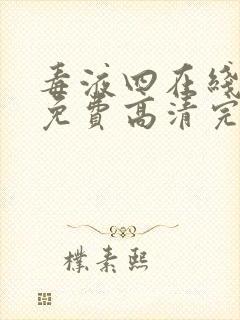 毒液四在线
免费高清完
樸素熙